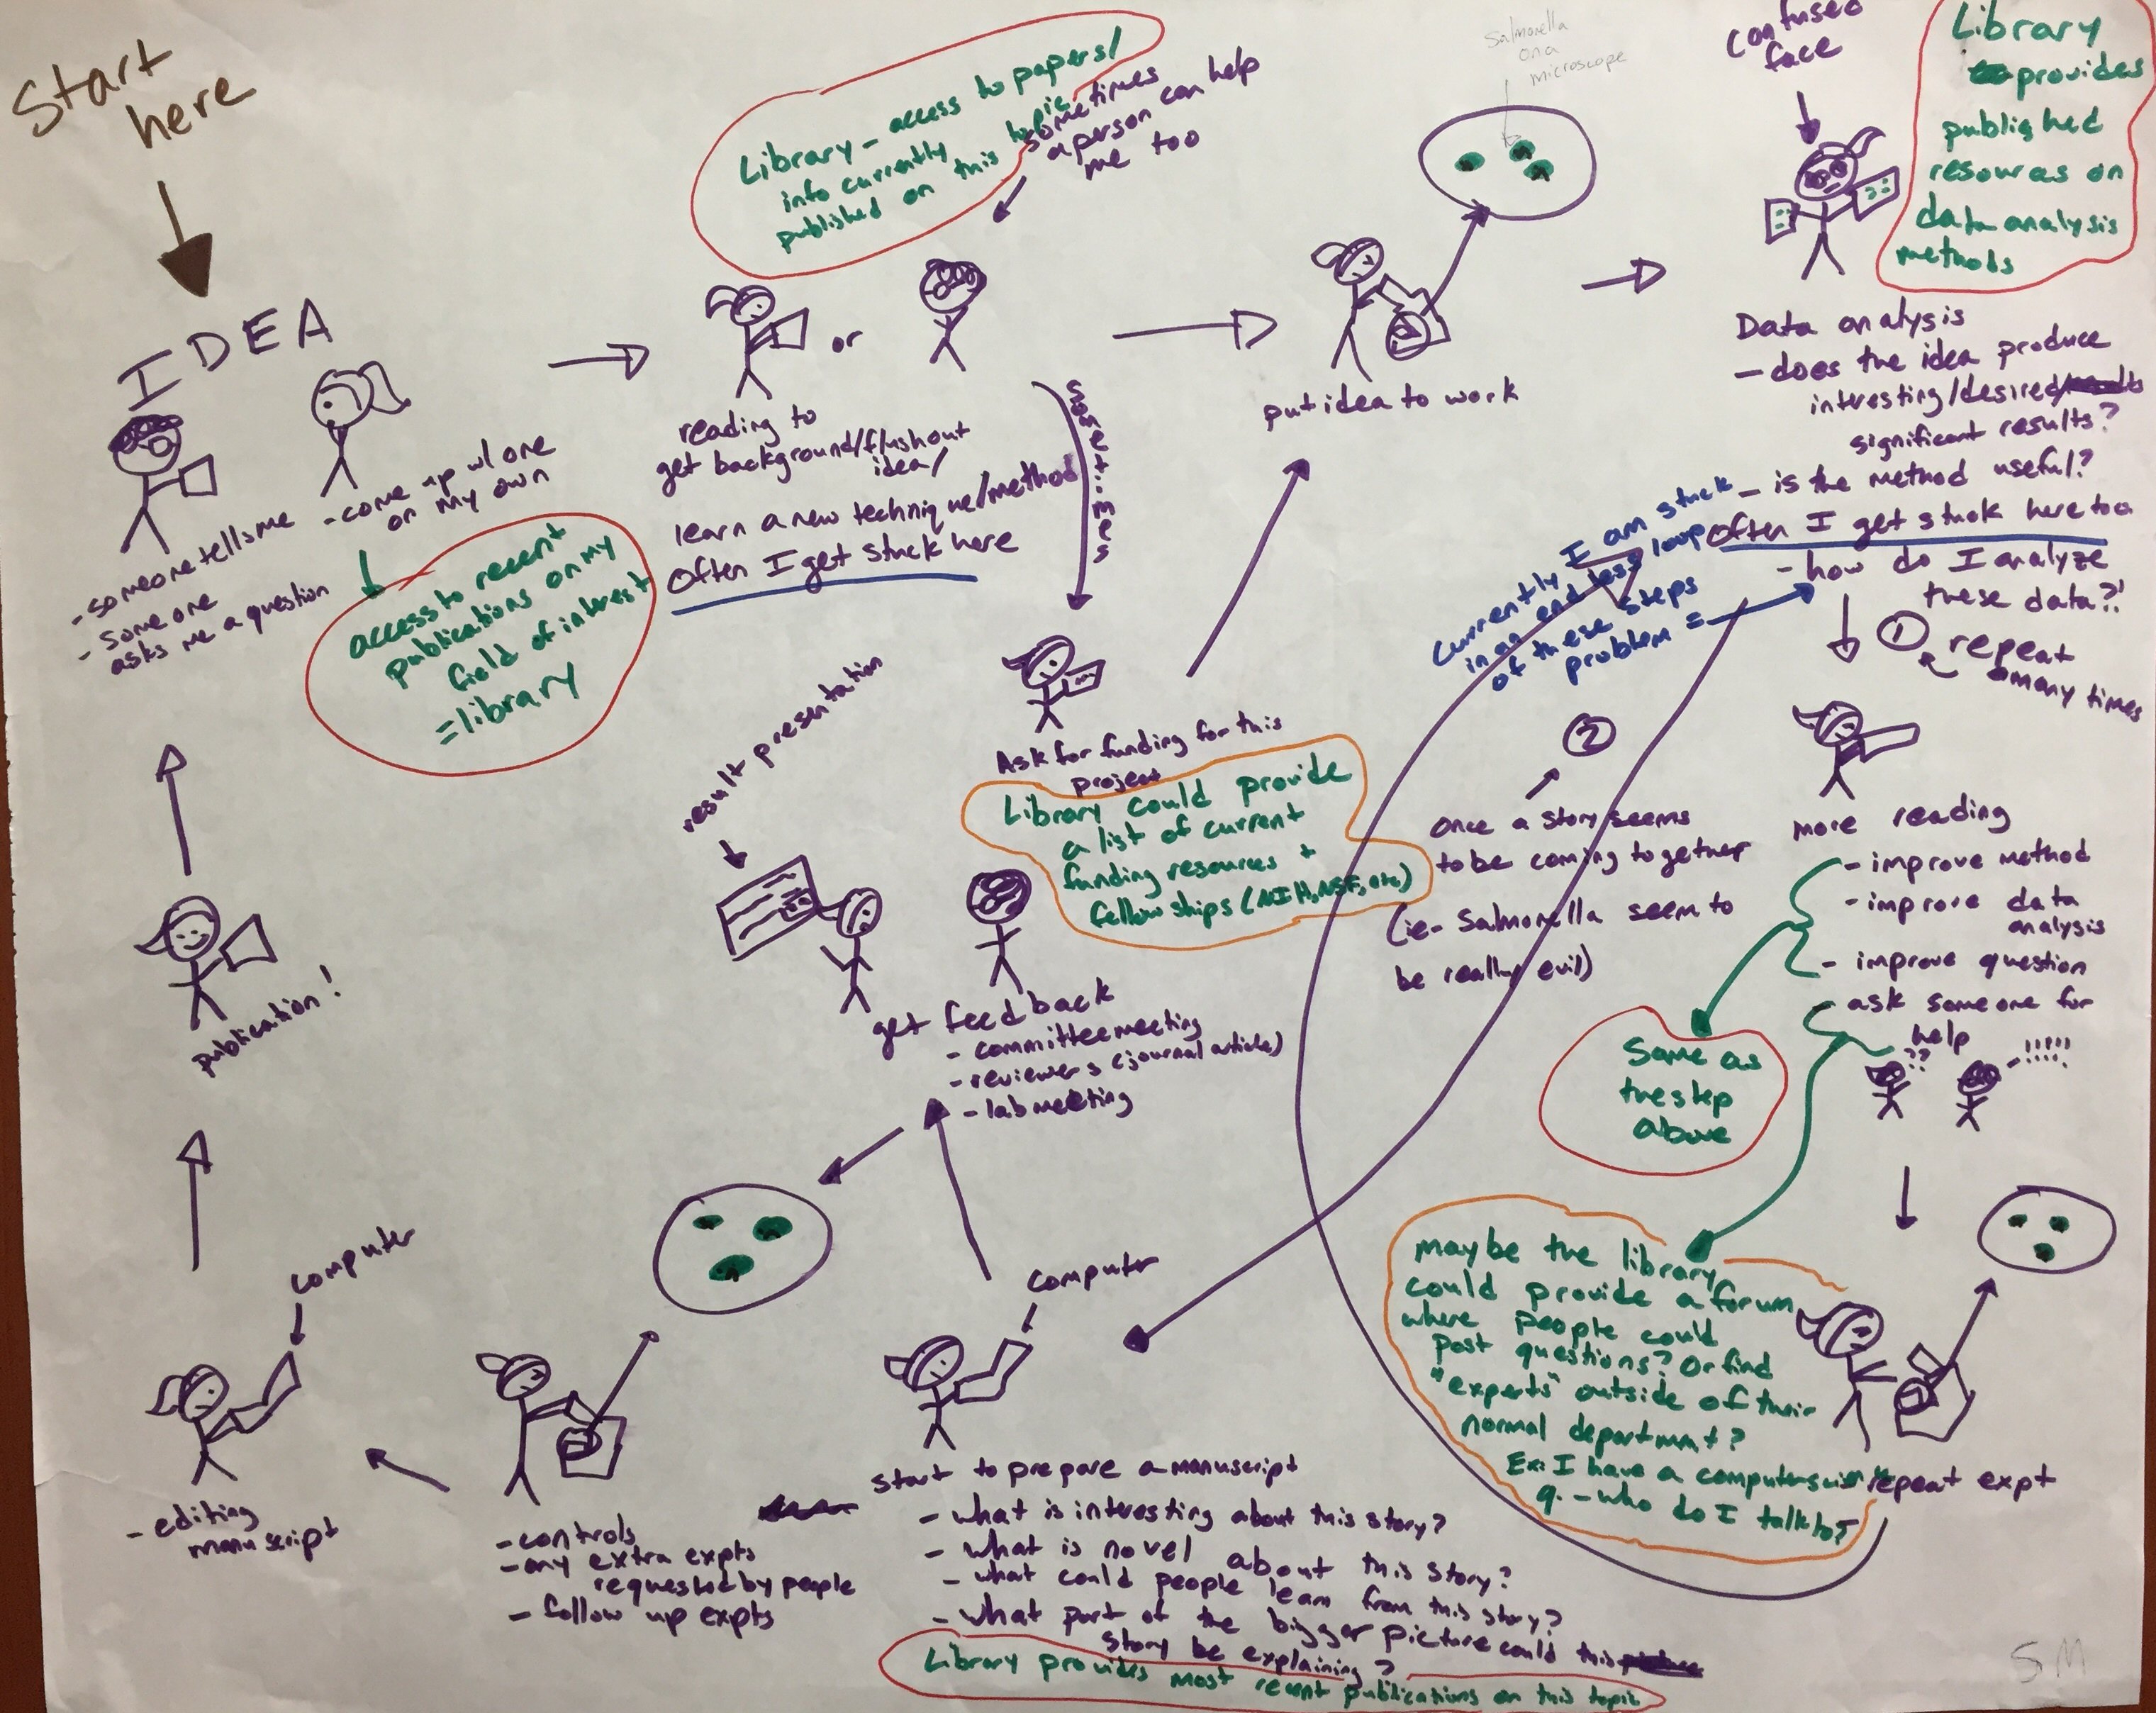 Start
here
IDEA
- someone tells me
- someone
asks me a question
- come up w/ one
on my own
access to recent
publications on my
field of interest
= library
Library - access to papers/
info currently
published on this topic
sometimes
a person can help
me too
or
reading to
get background/flush out
idea/
learn a new technique/method
Often I get stuck here
sometimes
Ask for funding for this
project
Library could provide
a list of current
funding resources +
fellowships (NIH, NSF, etc)
put idea to work
Salmonella
on a
microscope
confused
face
Library
provides
published
resources on
data analysis
methods
Data analysis
- does the idea produce
interesting/desired/
significant results?
- is the method useful?
Often I get stuck here too
- how do I analyze
these data?!
Currently I am stuck
in an endless loop
of these steps
problem =
① repeat
many times
more reading
- improve method
- improve data
analysis
- improve question
- ask someone for
help
??
- !!!!!
Same as
the step
above
maybe the library
could provide a forum
where people could
post questions? Or find
"experts" outside of their
normal department?
Ex: I have a computer
q. - who do I talk to?
repeat expt
②
Once a story seems
to be coming together
(ie - Salmonella seem to
be really evil)
computer
start to prepare a manuscript
- what is interesting about this story?
- what is novel about this story?
- what could people learn from this story?
- what part of the bigger picture could this
story be explaining?
Library provides most recent publications on this topic
result presentation
get feedback
- committee meeting
- reviewers (journal article)
- lab meeting
- controls
- any extra expts
requested by people
- follow up expts
computer
- editing
manuscript
publication!
SM